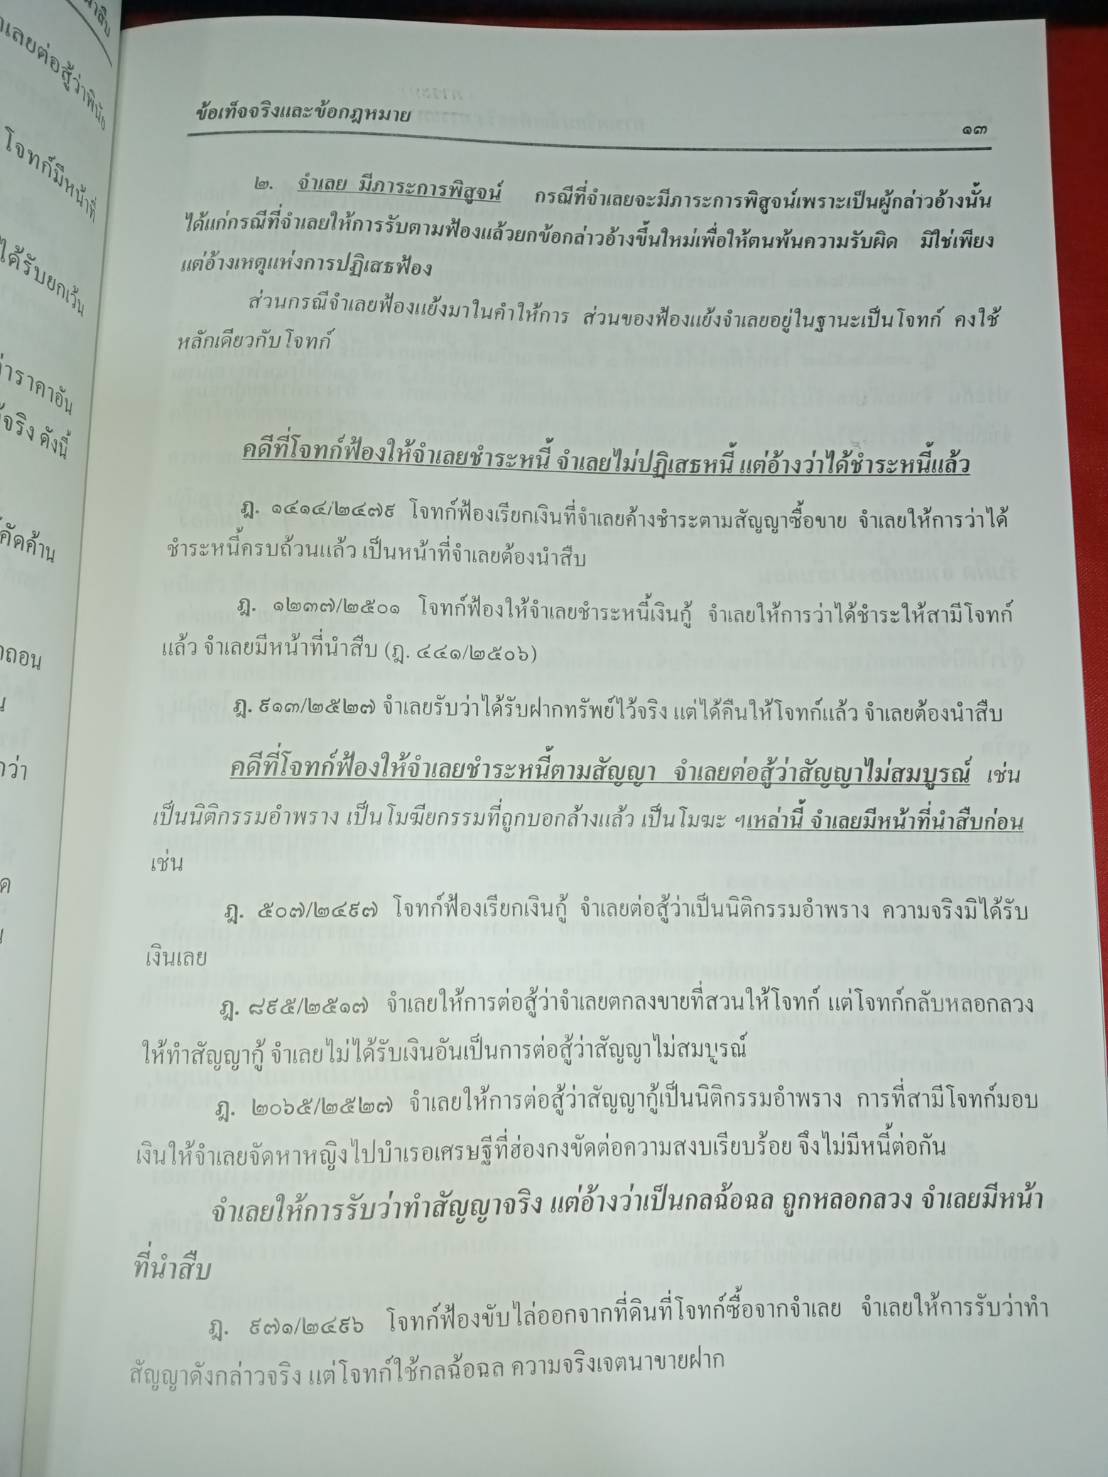 ข้อเท็จจริงและข้อกฎหมาย
๑๓
๒. จำเลย มีภาระการพิสูจน์ กรณีที่จำเลยจะมีภาระการพิสูจน์เพราะเป็นผู้กล่าวอ้างนั้น
ได้แก่กรณีที่จำเลยให้การรับตามฟ้องแล้วยกข้อกล่าวอ้างขึ้นใหม่เพื่อให้ตนพ้นความรับผิด มิใช่เพียง
แต่อ้างเหตุแห่งการปฏิเสธฟ้อง
ส่วนกรณีจำเลยฟ้องแย้งมาในคำให้การ ส่วนของฟ้องแย้งจำเลยอยู่ในฐานะเป็นโจทก์ คงใช้
หลักเดียวกับโจทก์
คดีที่โจทก์ฟ้องให้จำเลยชำระหนี้ จำเลยไม่ปฏิเสธหนี้ แต่อ้างว่าได้ชำระหนี้แล้ว
ฎ. ๑๔๑๔/๒๔๗๙ โจทก์ฟ้องเรียกเงินที่จำเลยค้างชำระตามสัญญาซื้อขาย จำเลยให้การว่าได้
ชำระหนี้ครบถ้วนแล้ว เป็นหน้าที่จำเลยต้องนำสืบ
ฎ. ๑๒๓๗/๒๕๐๑ โจทก์ฟ้องให้จำเลยชำระหนี้เงินกู้ จำเลยให้การว่าได้ชำระให้สามีโจทก์
แล้ว จำเลยมีหน้าที่นำสืบ (ฎ. ๔๔๑/๒๕๐๖)
ฎ. ๙๑๓/๒๕๒๗ จำเลยรับว่าได้รับฝากทรัพย์ไว้จริง แต่ได้คืนให้โจทก์แล้ว จำเลยต้องนำสืบ
คดีที่โจทก์ฟ้องให้จำเลยชำระหนี้ตามสัญญา จำเลยต่อสู้ว่าสัญญาไม่สมบูรณ์ เช่น
เป็นนิติกรรมอำพราง เป็นโมฆียกรรมที่ถูกบอกล้างแล้ว เป็นโมฆะ ฯเหล่านี้ จำเลยมีหน้าที่นำสืบก่อน
เช่น
ฎ. ๕๐๗/๒๔๙๗ โจทก์ฟ้องเรียกเงินกู้ จำเลยต่อสู้ว่าเป็นนิติกรรมอำพราง ความจริงมิได้รับ
เงินเลย
ฎ. ๘๙๕/๒๕๑๗ จำเลยให้การต่อสู้ว่าจำเลยตกลงขายที่สวนให้โจทก์ แต่โจทก์กลับหลอกลวง
ให้ทำสัญญากู้ จำเลยไม่ได้รับเงินอันเป็นการต่อสู้ว่าสัญญาไม่สมบูรณ์
ฎ. ๒๐๖๕/๒๕๒๗ จำเลยให้การต่อสู้ว่าสัญญากู้เป็นนิติกรรมอำพราง การที่สามีโจทก์มอบ
เงินให้จำเลยจัดหาหญิงไปบำเรอเศรษฐีที่ฮ่องกงขัดต่อความสงบเรียบร้อย จึงไม่มีหนี้ต่อกัน
จำเลยให้การรับว่าทำสัญญาจริง แต่อ้างว่าเป็นกลฉ้อฉล ถูกหลอกลวง จำเลยมีหน้า
ที่นำสืบ
ฎ. ๙๗๑/๒๔๙๖ โจทก์ฟ้องขับไล่ออกจากที่ดินที่โจทก์ซื้อจากจำเลย จำเลยให้การรับว่าทำ
สัญญาดังกล่าวจริง แต่โจทก์ใช้กลฉ้อฉล ความจริงเจตนาขายฝาก